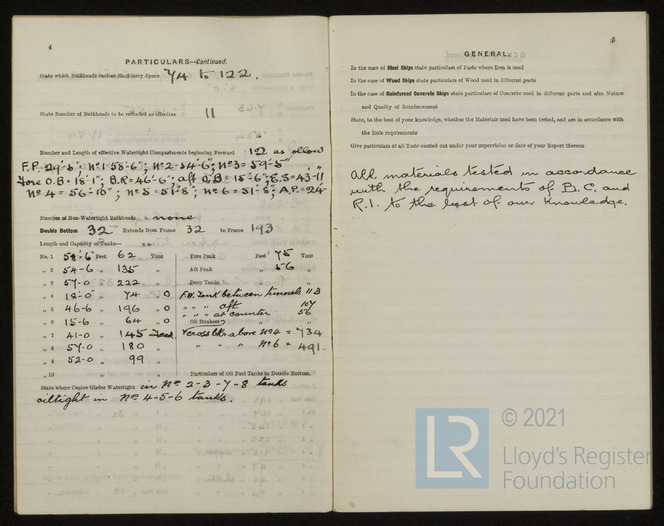 4
PARTICULARS—Continued.
State which Bulkheads enclose Machinery Space 74 to 122.
State Number of Bulkheads to be recorded as effective 11
Number and Length of effective Watertight Compartments beginning Forward 12 as follows
F.P. 29'-5"; No 1 58'-6"; No 2 = 54-6"; No 3 = 59-5"
Fore O.B = 18'-1"; B.R = 46-6"; aft O.B = 15'-6"; E.S = 43-11"
No 4 = 56-10"; No 5 = 51-8"; No 6 = 51-8"; A.P. = 24-
Number of Non-Watertight Bulkheads, none
Double Bottom 32 Extends from Frame 32 to Frame 193
Length and Capacity of Tanks—
No. 1 58-6 Feet 62 Tons
„ 2 54-6 „ 135 „
„ 3 57-0 „ 222 „
„ 4 18-0 „ 74 „ O
„ 5 46-6 „ 196 „ O
„ 6 15-6 „ 64 „ O
„ 7 41-0 „ 145 Feed
„ 8 57-0 „ 180 „
„ 9 52-0 „ 99 „
„ 10
Fore Peak Feet 75 Tons
Aft Peak „ 56 „
Deep Tanks
F.W. Tank between tunnels 113
„ „ „ aft 107
„ „ „ at counter 56
Oil Bunkers
Cross Bkr above No 4 = 734
„ „ „ No 6 = 491.
Particulars of Oil Fuel Tanks in Double Bottom.
State where Centre Girder Watertight in No 2-3-7-8 tanks
oiltight in No 4-5-6 tanks.
5
GENERAL.
In the case of Steel Ships state particulars of Parts where Iron is used
In the case of Wood Ships state particulars of Wood used in different parts
In the case of Reinforced Concrete Ships state particulars of Concrete used in different parts and also Nature
and Quality of Reinforcement
State, to the best of your knowledge, whether the Materials used have been tested, and are in accordance with
the Rule requirements
Give particulars of all Tests carried out under your supervision or date of your Report thereon
All materials tested in accordance
with the requirements of B.C. and
R.I. to the best of our knowledge.
LR
© 2021
Lloyd's Register
Foundation